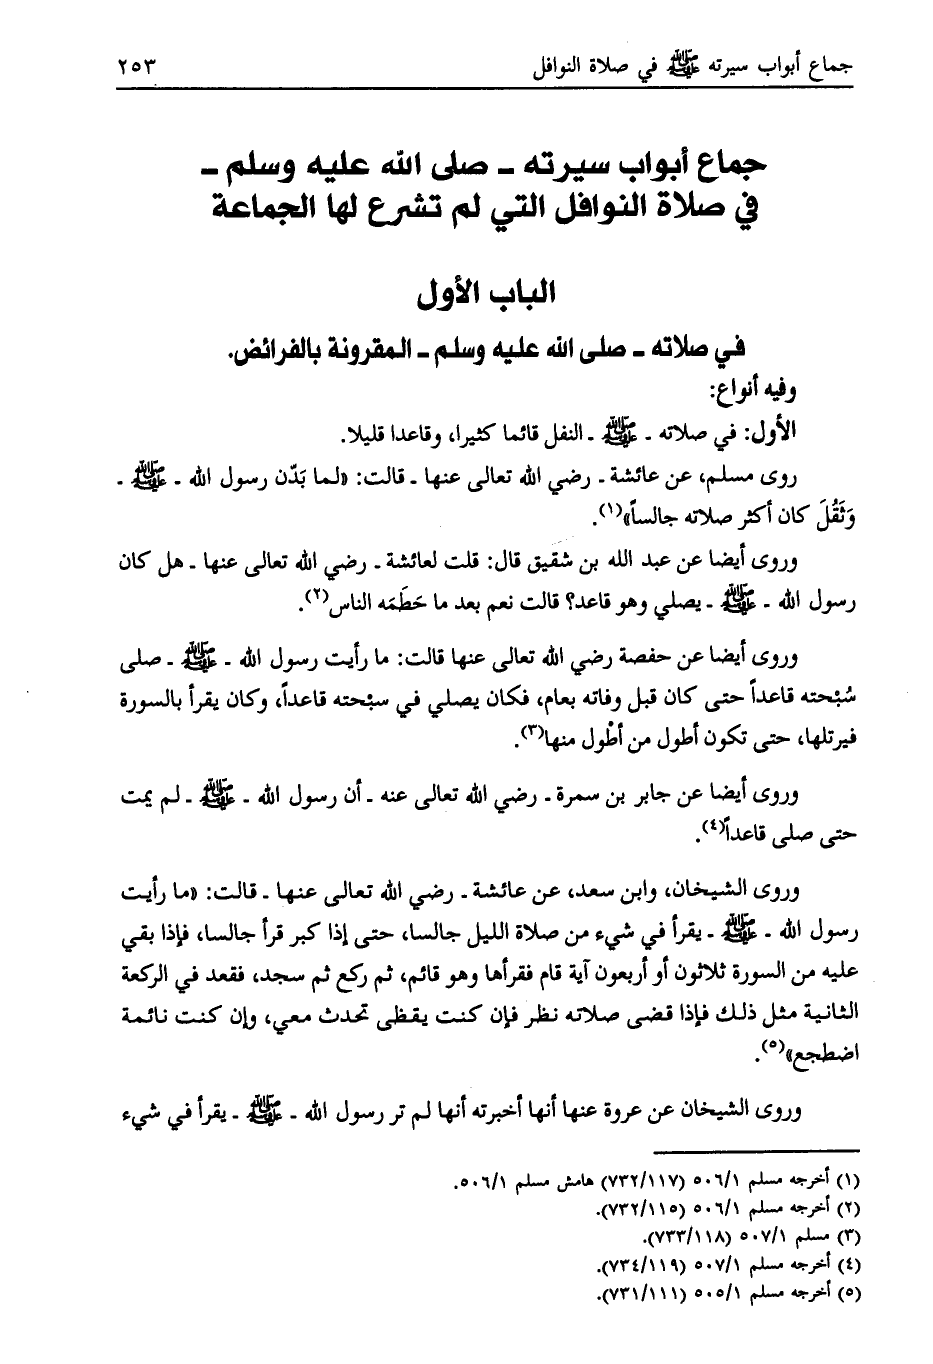 جماع أبواب سيرته ﷺ في صلاة النوافل ٢٥٣
جماع أبواب سيرته ـ صلى الله عليه وسلم ـ
في صلاة النوافل التي لم تشرع لها الجماعة
الباب الأول
في صلاته ـ صلى الله عليه وسلم ـ المقرونة بالفرائض.
وفيه أنواع:
الأول: في صلاته ـ ﷺ ـ النفل قائما كثيرا، وقاعدا قليلا.
روى مسلم، عن عائشة ـ رضي الله تعالى عنها ـ قالت: «لما بَدّن رسول الله ـ ﷺ ـ
وَثَقُلَ كان أكثر صلاته جالساً»(١).
وروى أيضا عن عبد الله بن شَقيق قال: قلت لعائشة ـ رضي الله تعالى عنها ـ هل كان
رسول الله ـ ﷺ ـ يصلي وهو قاعد؟ قالت نعم بعد ما حَطَمَه الناس(٢).
وروى أيضا عن حفصة رضي الله تعالى عنها قالت: ما رأيت رسول الله ـ ﷺ ـ صلى
سُبْحته قاعداً حتى كان قبل وفاته بعام، فكان يصلي في سبْحته قاعداً، وكان يقرأ بالسورة
فيرتلها، حتى تكون أطول من أطْول منها(٣).
وروى أيضا عن جابر بن سمرة ـ رضي الله تعالى عنه ـ أن رسول الله ـ ﷺ ـ لم يمت
حتى صلى قاعداً(٤).
وروى الشيخان، وابن سعد، عن عائشة ـ رضي الله تعالى عنها ـ قالت: «ما رأيت
رسول الله ـ ﷺ ـ يقرأ في شيء من صلاة الليل جالسا، حتى إذا كبر قرأ جالسا، فإذا بقي
عليه من السورة ثلاثون أو أربعون آية قام فقرأها وهو قائم، ثم ركع ثم سجد، فقعد في الركعة
الثانية مثل ذلك فإذا قضى صلاته نظر فإن كنت يقظى تحدث معي، وإن كنت نائمة
اضطجع»(٥).
وروى الشيخان عن عروة عنها أنها أخبرته أنها لم تر رسول الله ـ ﷺ ـ يقرأ في شيء
(١) أخرجه مسلم ٥٠٦/١ (٧٣٢/١١٧) هامش مسلم ٥٠٦/١.
(٢) أخرجه مسلم ٥٠٦/١ (٧٣٢/١١٥).
(٣) مسلم ٥٠٧/١ (٧٣٣/١١٨).
(٤) أخرجه مسلم ٥٠٧/١ (٧٣٤/١١٩).
(٥) أخرجه مسلم ٥٠٥/١ (٧٣١/١١١).